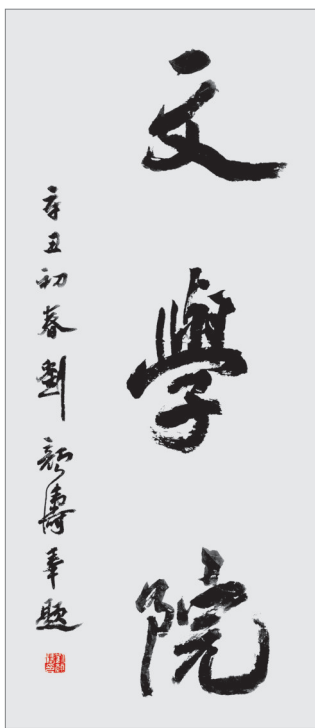 文學院
辛丑初春劉顏濤題